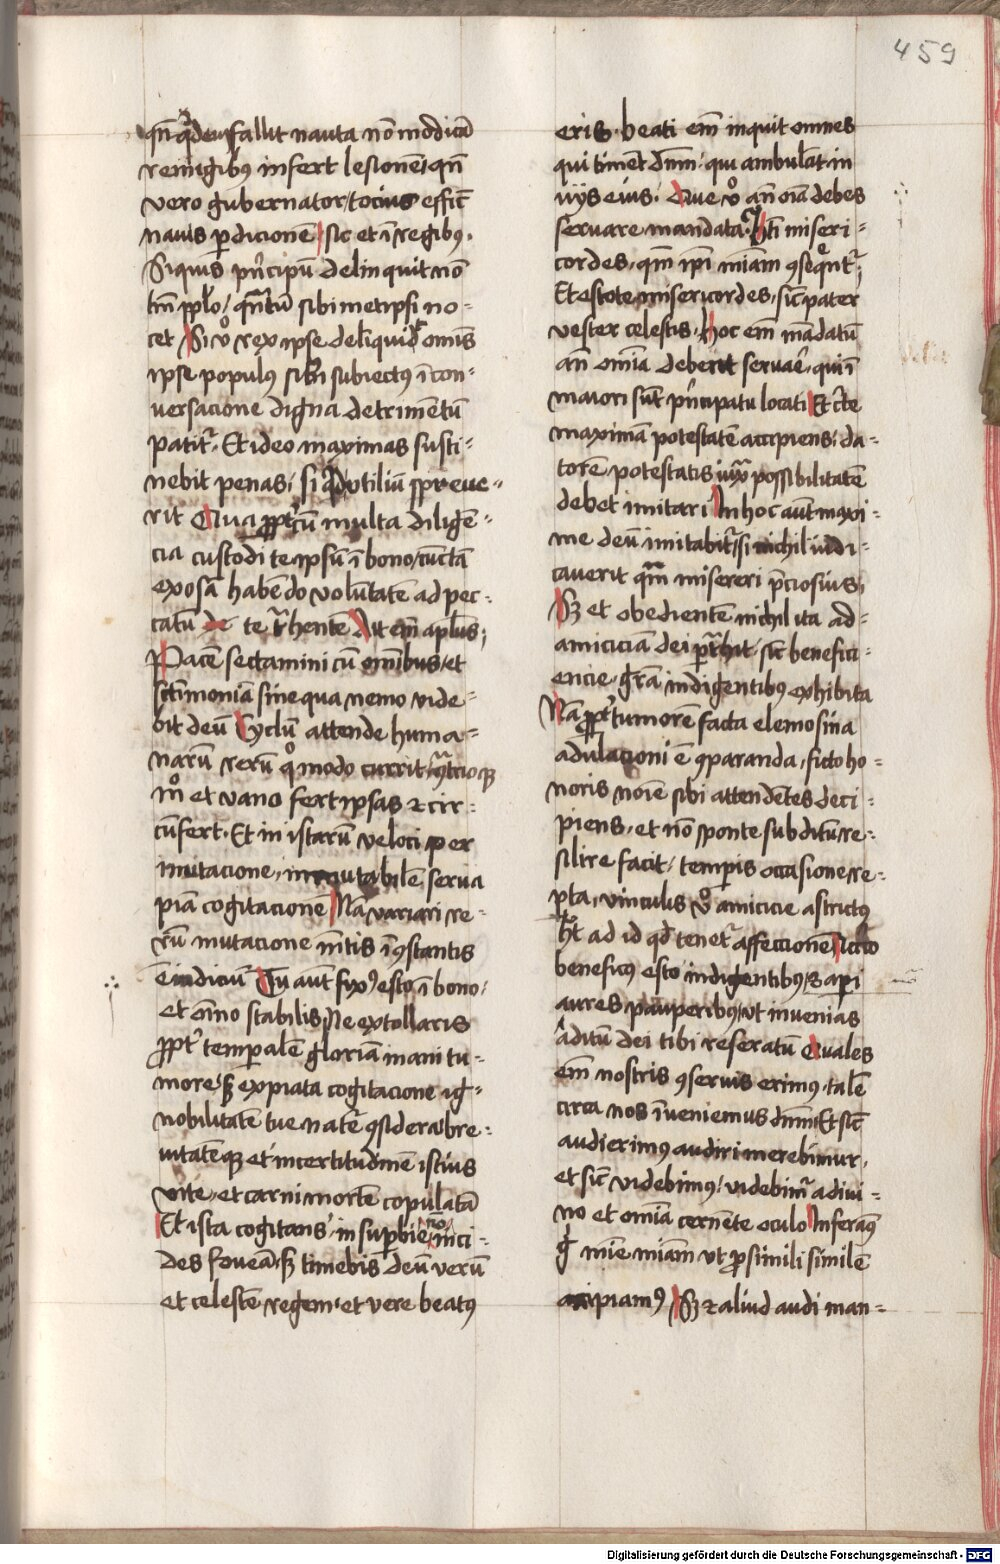 459
qn̄ qͥdem fallit nauta nō modicā
remigibꝰ infert lesionē qn̄
vero gubernator tocius effic̄
nauis ꝑdicionē sic et ī regibꝰ.
Si quis pn̄cipū delinquit nō
tm̄ pplo / qn̄tū sibimetipsi no⸗
cet Si v̊o rex ipse deliquid omīs
ipse populꝰ sibi subiectus ī con⸗
uersacione digna detrimētū
patitᷣ. Et ideo maximas susti⸗
nebit penas si qͥd vtiliū spreue⸗
rit Qua ꝓptͤ cū multa diligē⸗
cia custodi teipsū ī bono cūctā
exosā habēdo volūtatē ad pec⸗
catū te tᷓhentē Ait em̄ apl̄us
Pacē sectamini cū omibus et
sctīmoniā sine qua nemo vide⸗
bit deū Cyclū attende huma⸗
narū rerū qͦmodo currit
m̊ et vano fert ipsas ⁊ cir⸗
cūfert. Et in istarū veloci per
mutacione immutabilē serua
piā cogitacionē Nā variari re⸗
rū mutacione mētis īꝯstantis
ē indiciū Tu aut̄ fyxꝰ esto ī bono
et om̄no stabilis Ne extollaris
ꝓptᷣ temꝑalē gloriā inani tu⸗
more sꝫ expiata cogitacione ig⸗
nobilitatē tue natᷣe ꝯsidera bre⸗
uitatēqꝫ et incertitudinē istius
vite et carni mortē copulatā
Et ista cogitans in suꝑbie nō inci⸗
des foueā sꝫ timebis deū verū
et celestē regem et vere beatꝰ
eris. beati em̄ inquit omnes
qui timēt dn̄m qui ambulāt in
vijs eius. Que v̊o an̄ oīa debes
seruare mandata. Bt̄i miseri⸗
cordes qm̄ ipī miam ꝯsequēt̃
Et estote misericordes sic̄ pater
vester celestis. Hoc em̄ mādatū
an̄ omīa debent seruaē qui ī
maiori sūt pn̄cipatu locati Et c̄te
maximā potestatē accipiens da⸗
torē potestatis iuxᷓ possibilitatē
debet imitari In hoc aut̄ maxi⸗
me deū imitabitᷣ si nichil iudi⸗
cauerit qᷓm misereri p̄ciosius
Sꝫ et obedientē nichil ita ad
amiciciā dei ꝑtᷓhit sic̄ benefici⸗
encie gr̄a indigentibꝰ exhibita
Nā ꝓptᷣ tumorē facta elemosina
adulacioni ē ꝯparanda ficto ho⸗
noris noīe sibi attendētes deci⸗
piens et nō sponte subditū re⸗
silire facit tempis occasione re⸗
pta, vinculis v̊o amicicie astrictꝰ
ht̄ ad id qd̄ tenetᷣ affeccionē
beneficꝰ esto indigentibꝰ et api
aures pauperibꝰ vt inuenias
aditū dei tibi reseratū Quales
em̄ nostris ꝯseruis erimꝰ talē
circa nos īueniemus dn̄m Et sic̄
audierimꝰ audiri merebimur
et sic̄ videbimꝰ videbimᷣ a diui⸗
no et omīa cernēte oculo Inferamꝰ
g̊ mīe miam vt ꝓ simili similē
accipiamꝰ Sꝫ ⁊ aliud audi man⸗
Digitalisierung gefördert durch die Deutsche Forschungsgemeinschaft - DFG